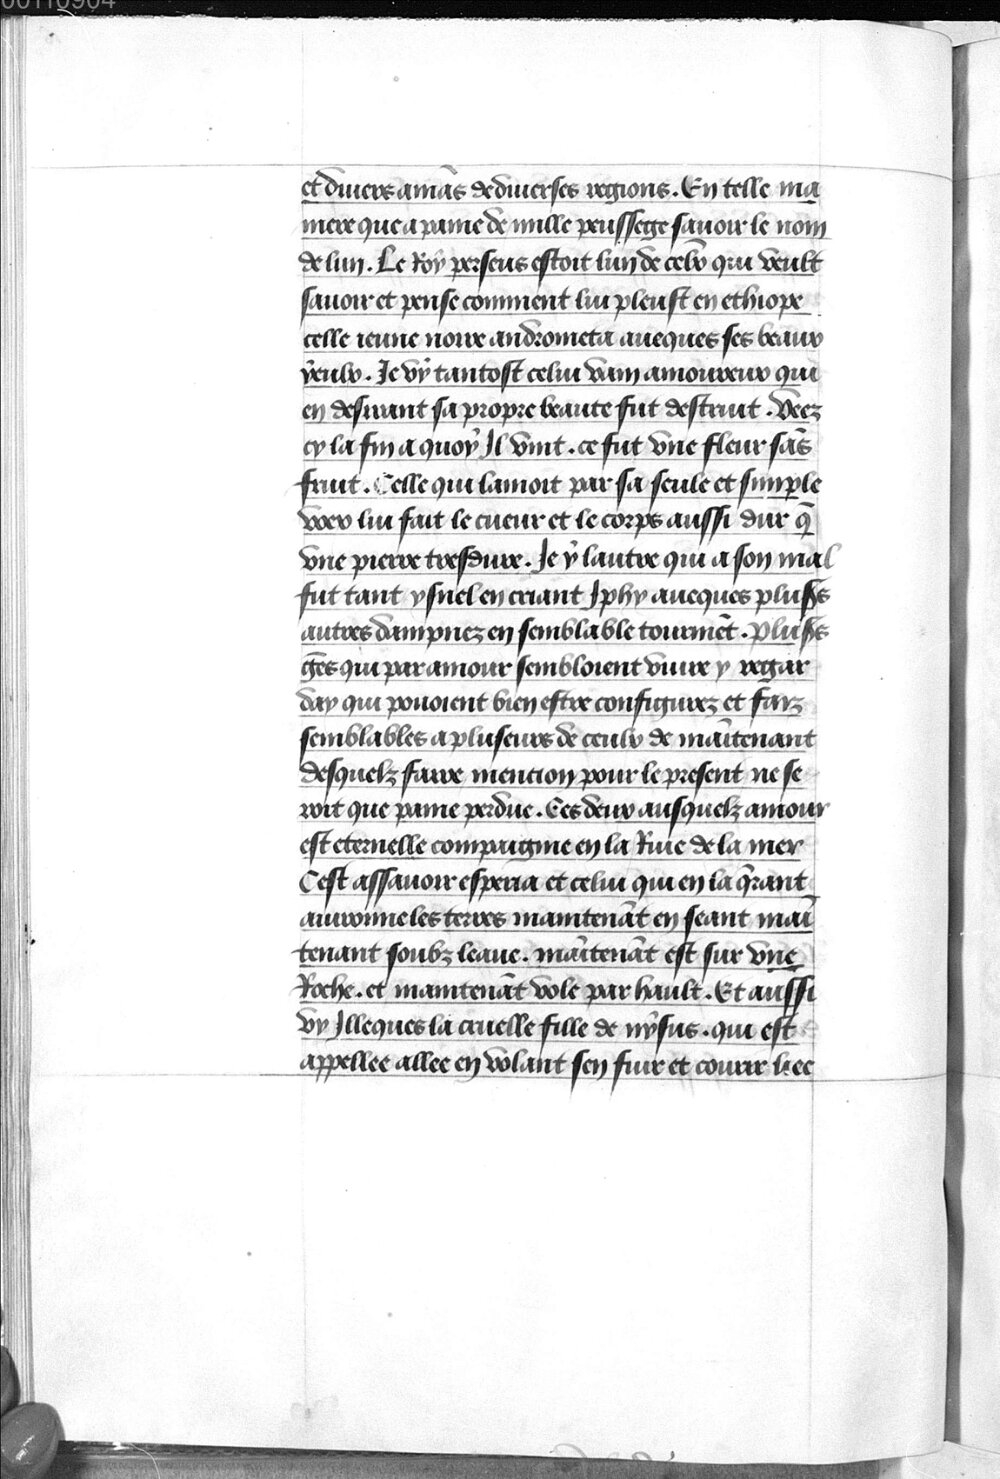 00110904
et diuers amās de diuerses regions. En telle ma
niere que a paine de mille peusse ge sauoir le nom
de lun. Le Roy perseus estoit lun de celx qui veult
sauoir et pense comment lui pleust en ethiope
celle ieune noire andrometa auecques ses beaux
yeulx. Je vy tantost celui vain amoureux qui
en desirant sa propre beaute fut destruit. Veez
cy la fin a quoy Il vint. ce fut vne fleur sās
fruit. Celle qui lamoit par sa seule et simple
voix lui fait le cueur et le corps aussi dur q̄
vne pierre tresdure. Je y lautre qui a son mal
fut tant ysnel en criant Iphy auecques plus̄s
autres dampnez en semblable tourmēt. Plus̄s
gēs qui par amour sembloient viure y regar
day qui pouoient bien estre configurez et faiz
semblables a pluseurs de ceulx de maītenant
desquelz faire mention pour le present ne se
roit que paine perdue. Ces deux ausquelz amour
est eternelle compaignie en la Riue de la mer
Cest assauoir esperia et celui qui en la q̄rant
auironne les terres maintenāt en seant maī
tenant soubz leaue. maītenāt est sur vne
Roche. et maintenāt vole par hault. Et aussi
vy Illeques la cruelle fille de nysus. qui est
appellee allee en volant sen fuir et courir